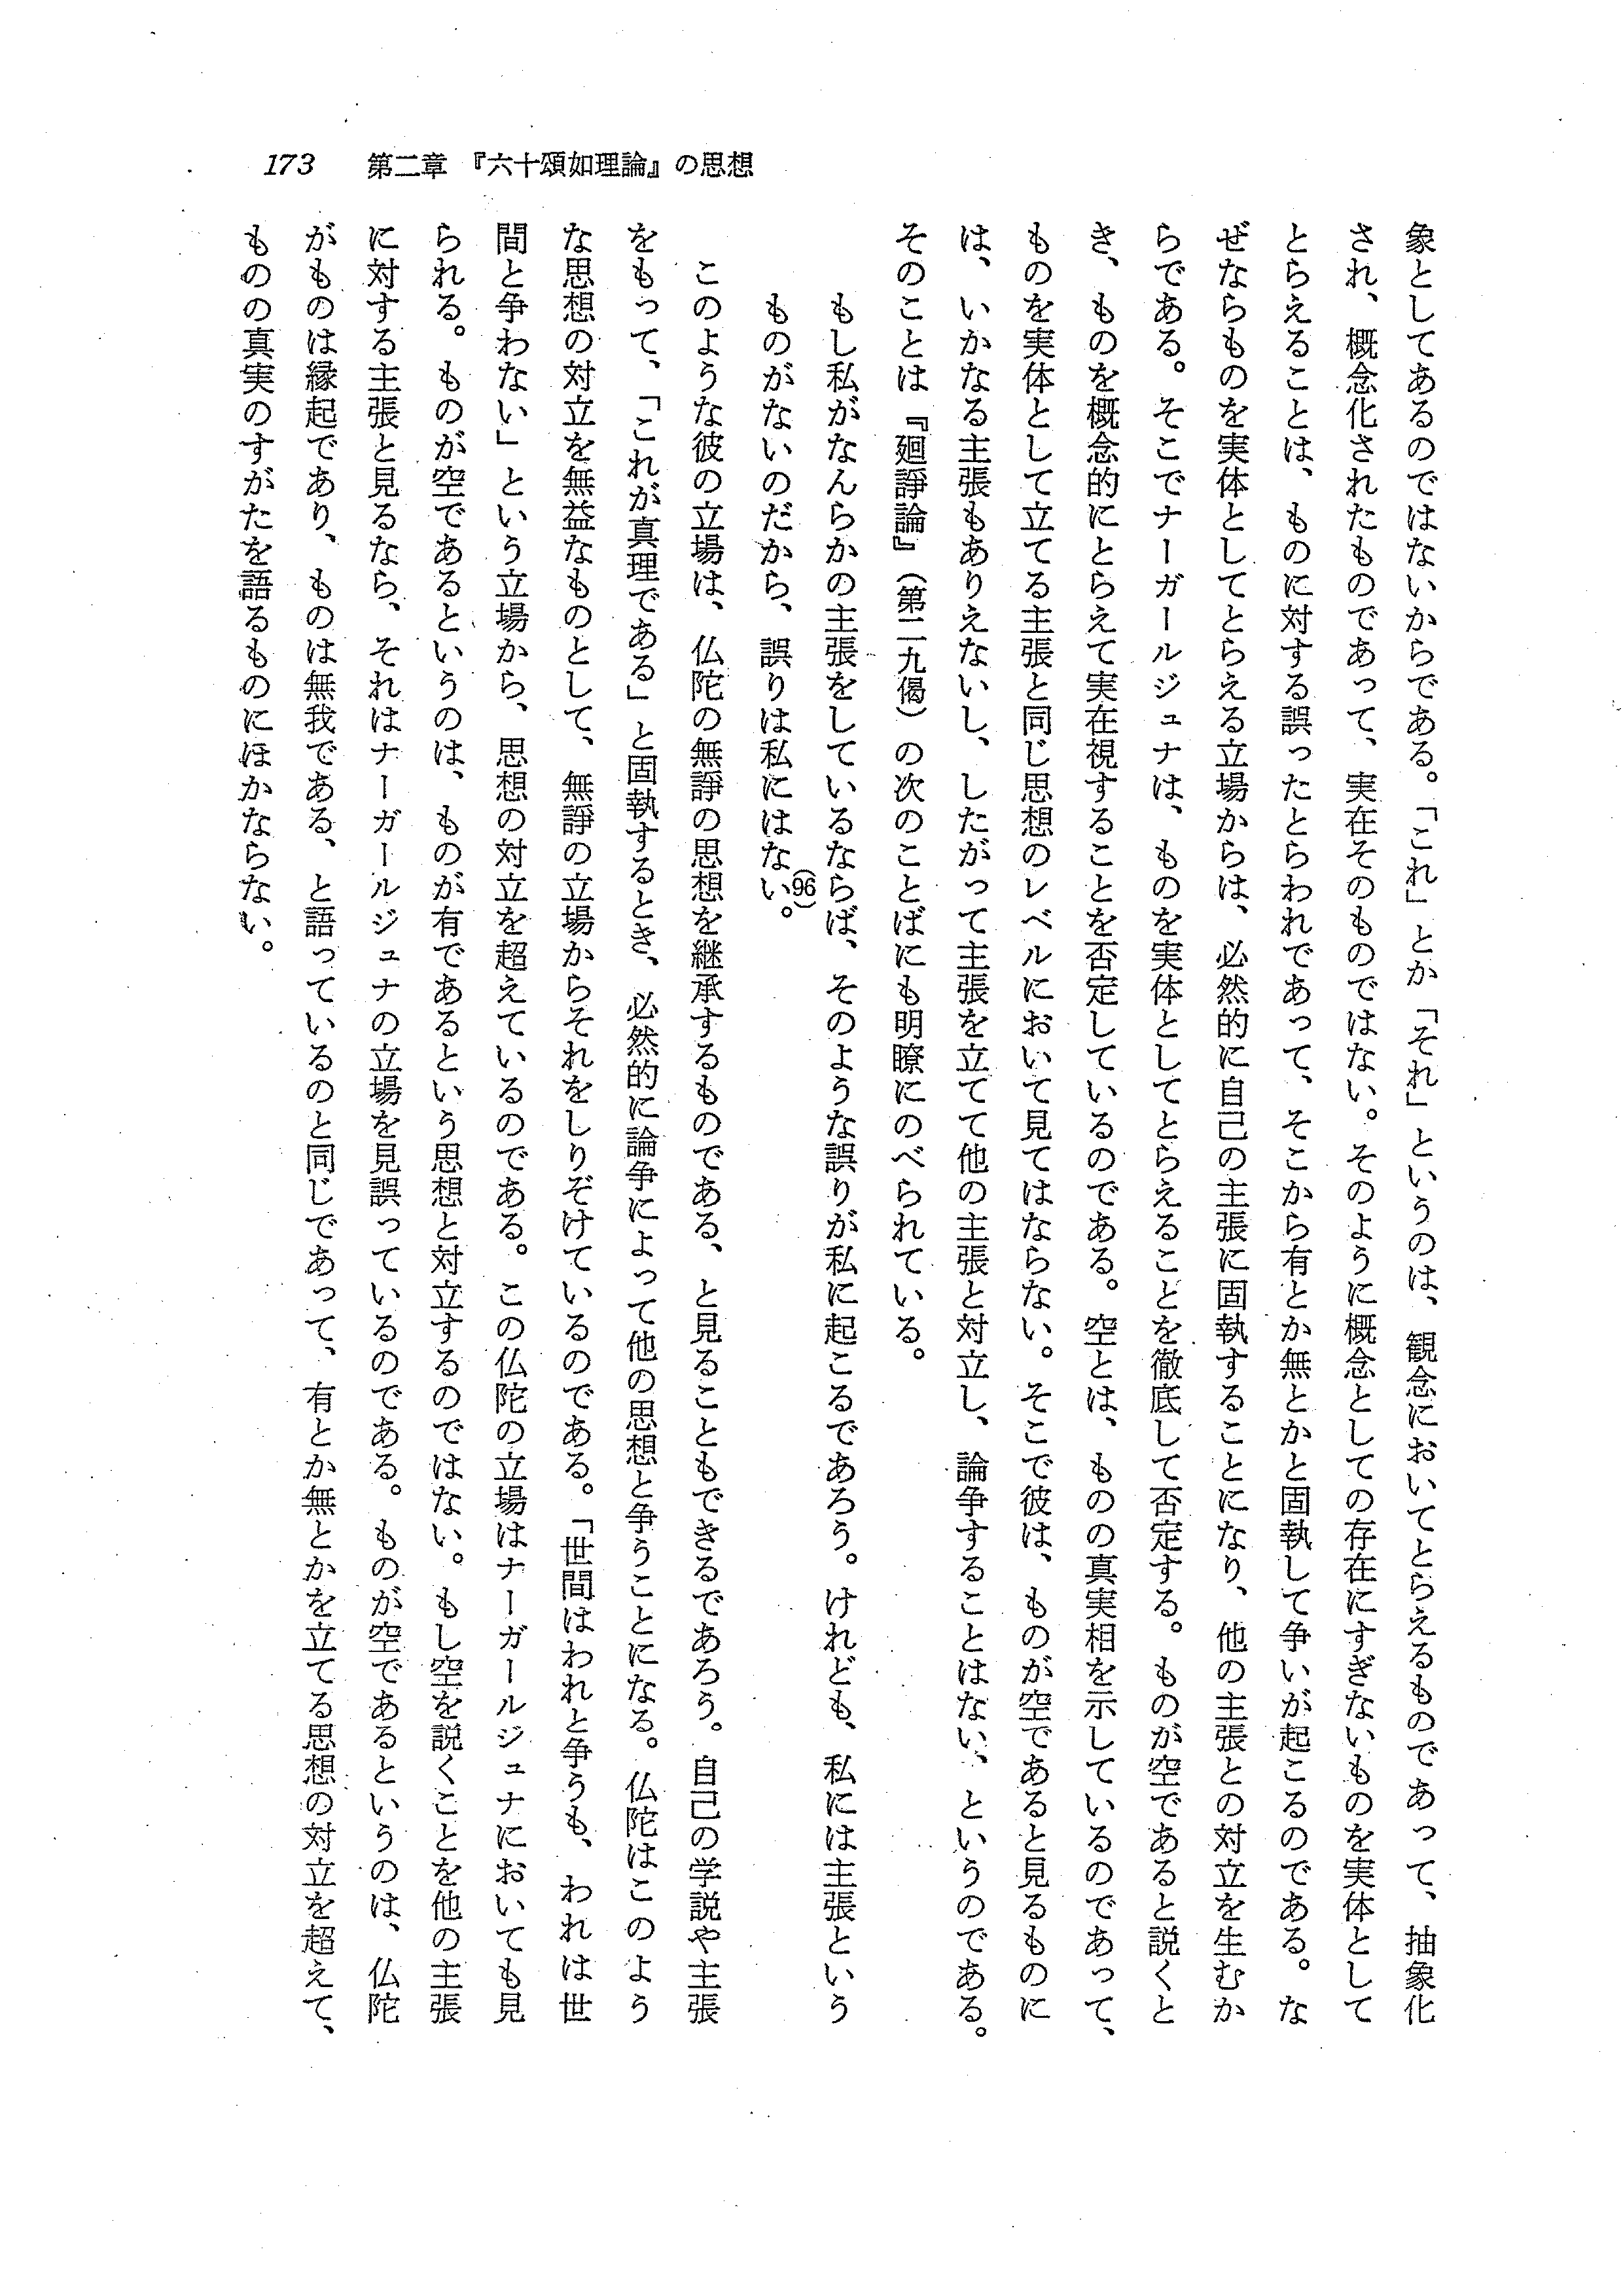 173 第二章 『六十頌如理論』の思想
象としてあるのではないからである。「これ」とか「それ」というのは、観念においてとらえるものであって、抽象化
され、概念化されたものであって、実在そのものではない。そのように概念としての存在にすぎないものを実体として
とらえることは、ものに対する誤ったとらわれであって、そこから有とか無とかと固執して争いが起こるのである。な
ぜならものを実体としてとらえる立場からは、必然的に自己の主張に固執することになり、他の主張との対立を生むか
らである。そこでナーガールジュナは、ものを実体としてとらえることを徹底して否定する。ものが空であると説くと
き、ものを概念的にとらえて実在視することを否定しているのである。空とは、ものの真実相を示しているのであって、
ものを実体として立てる主張と同じ思想のレベルにおいて見てはならない。そこで彼は、ものが空であると見るものに
は、いかなる主張もありえないし、したがって主張を立てて他の主張と対立し、論争することはない、というのである。
そのことは『廻諍論』（第二九偈）の次のことばにも明瞭にのべられている。
もし私がなんらかの主張をしているならば、そのような誤りが私に起こるであろう。けれども、私には主張という
ものがないのだから、誤りは私にはない。(96)
このような彼の立場は、仏陀の無諍の思想を継承するものである、と見ることもできるであろう。自己の学説や主張
をもって、「これが真理である」と固執するとき、必然的に論争によって他の思想と争うことになる。仏陀はこのよう
な思想の対立を無益なものとして、無諍の立場からそれをしりぞけているのである。「世間はわれと争うも、われは世
間と争わない」という立場から、思想の対立を超えているのである。この仏陀の立場はナーガールジュナにおいても見
られる。ものが空であるというのは、ものが有であるという思想と対立するのではない。もし空を説くことを他の主張
に対する主張と見るなら、それはナーガールジュナの立場を見誤っているのである。ものが空であるというのは、仏陀
がものは縁起であり、ものは無我である、と語っているのと同じであって、有とか無とかを立てる思想の対立を超えて、
ものの真実のすがたを語るものにほかならない。